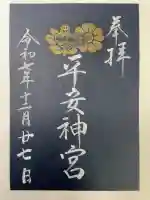 奉拝
平安神宮
令和七年十一月廿七日